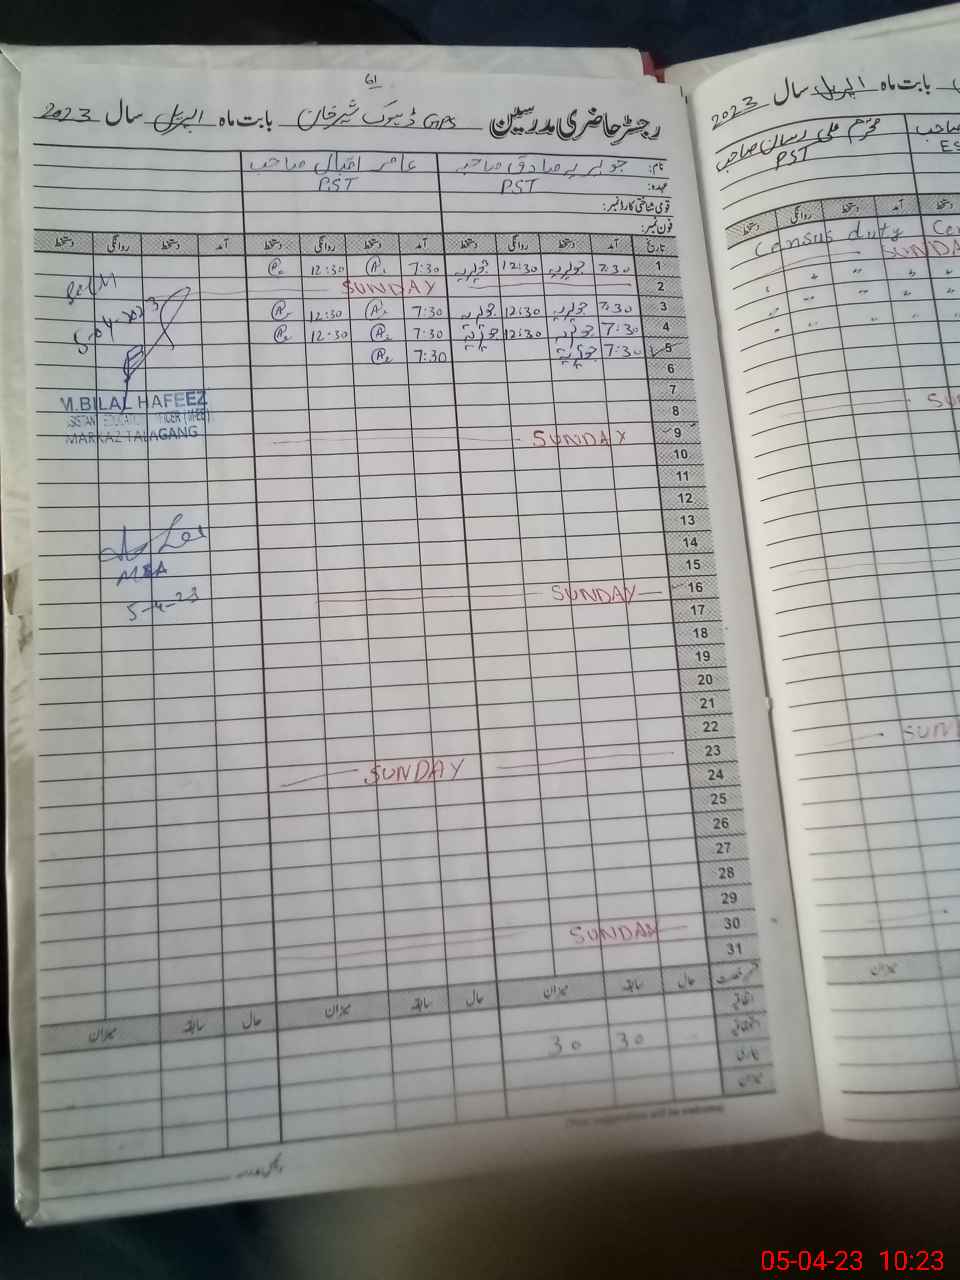 61
رجسٹر حاضری مدرسین GPS ڈہوک شیر خان بابت ماہ اپریل سال 2023
نام: جویریہ صادق صاحبہ عامر اقبال صاحب
عہدہ: PST PST
قومی شناختی کارڈ نمبر:
فون نمبر:
تاریخ آمد دستخط روانگی دستخط آمد دستخط روانگی دستخط آمد دستخط روانگی دستخط
1 7:30 جویریہ 12:30 جویریہ 7:30 12:30
2 SUNDAY
3 7:30 جویریہ 12:30 جویریہ 7:30 12:30
4 7:30 جویریہ 12:30 جویریہ 7:30 12:30
5 7:30 جویریہ 7:30
6
7
8
9 SUNDAY
10
11
12
13
14
15
16 SUNDAY
17
18
19
20
21
22
23 SUNDAY
24
25
26
27
28
29
30 SUNDAY
31
حال سابقہ میزان حال سابقہ میزان حال سابقہ میزان
اتفاقیہ
استحقاقیہ 30 30
بیماری
میزان
5-04-2023
M.BILAL HAFEEZ
ASSISTANT EDUCATION OFFICER (M-EE)
MARKAZ TALAGANG
MEA
5-4-23
بابت ماہ اپریل سال 2023
PST
دستخط روانگی دستخط آمد دستخط
Census duty
SUNDA
SU
SUN
میزان
05-04-23 10:23